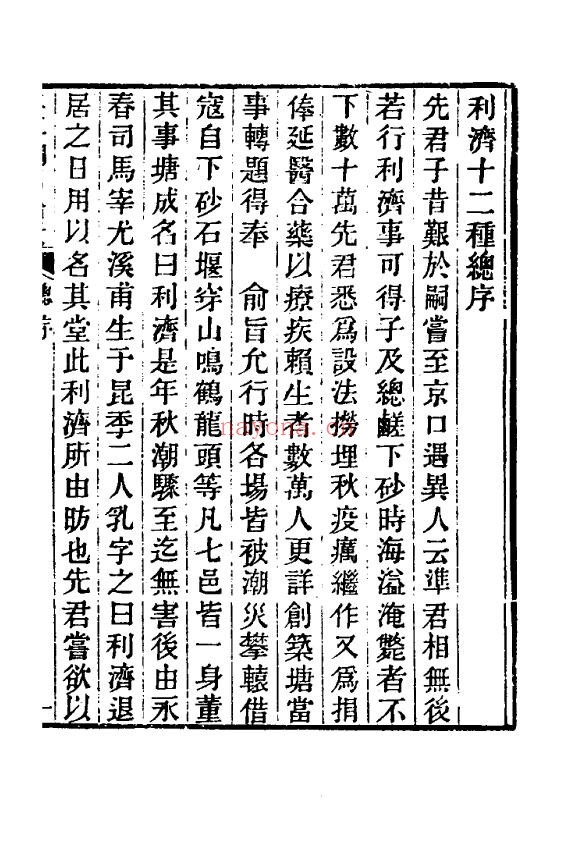 利濟十二種總序
先君子昔艱於嗣嘗至京口遇異人云準君相無後
若行利濟事可得子及總鹺下砂時海溢淹斃者不
下數十萬先君悉爲設法撈埋秋疫癘繼作又爲捐
俸延醫合藥以療疾賴生者數萬人更詳創築塘當
事轉題得奉　俞旨允行時各塲皆被潮災攀轅借
寇自下砂石堰穿山鳴鶴龍頭等凡七邑皆一身董
其事塘成名曰利濟是年秋潮驟至迄無害後由永
春司馬宰尤溪甫生于昆季二人乳字之曰利濟退
居之日用以名其堂此利濟所由昉也先君嘗欲以
總序
一
nayona.cn